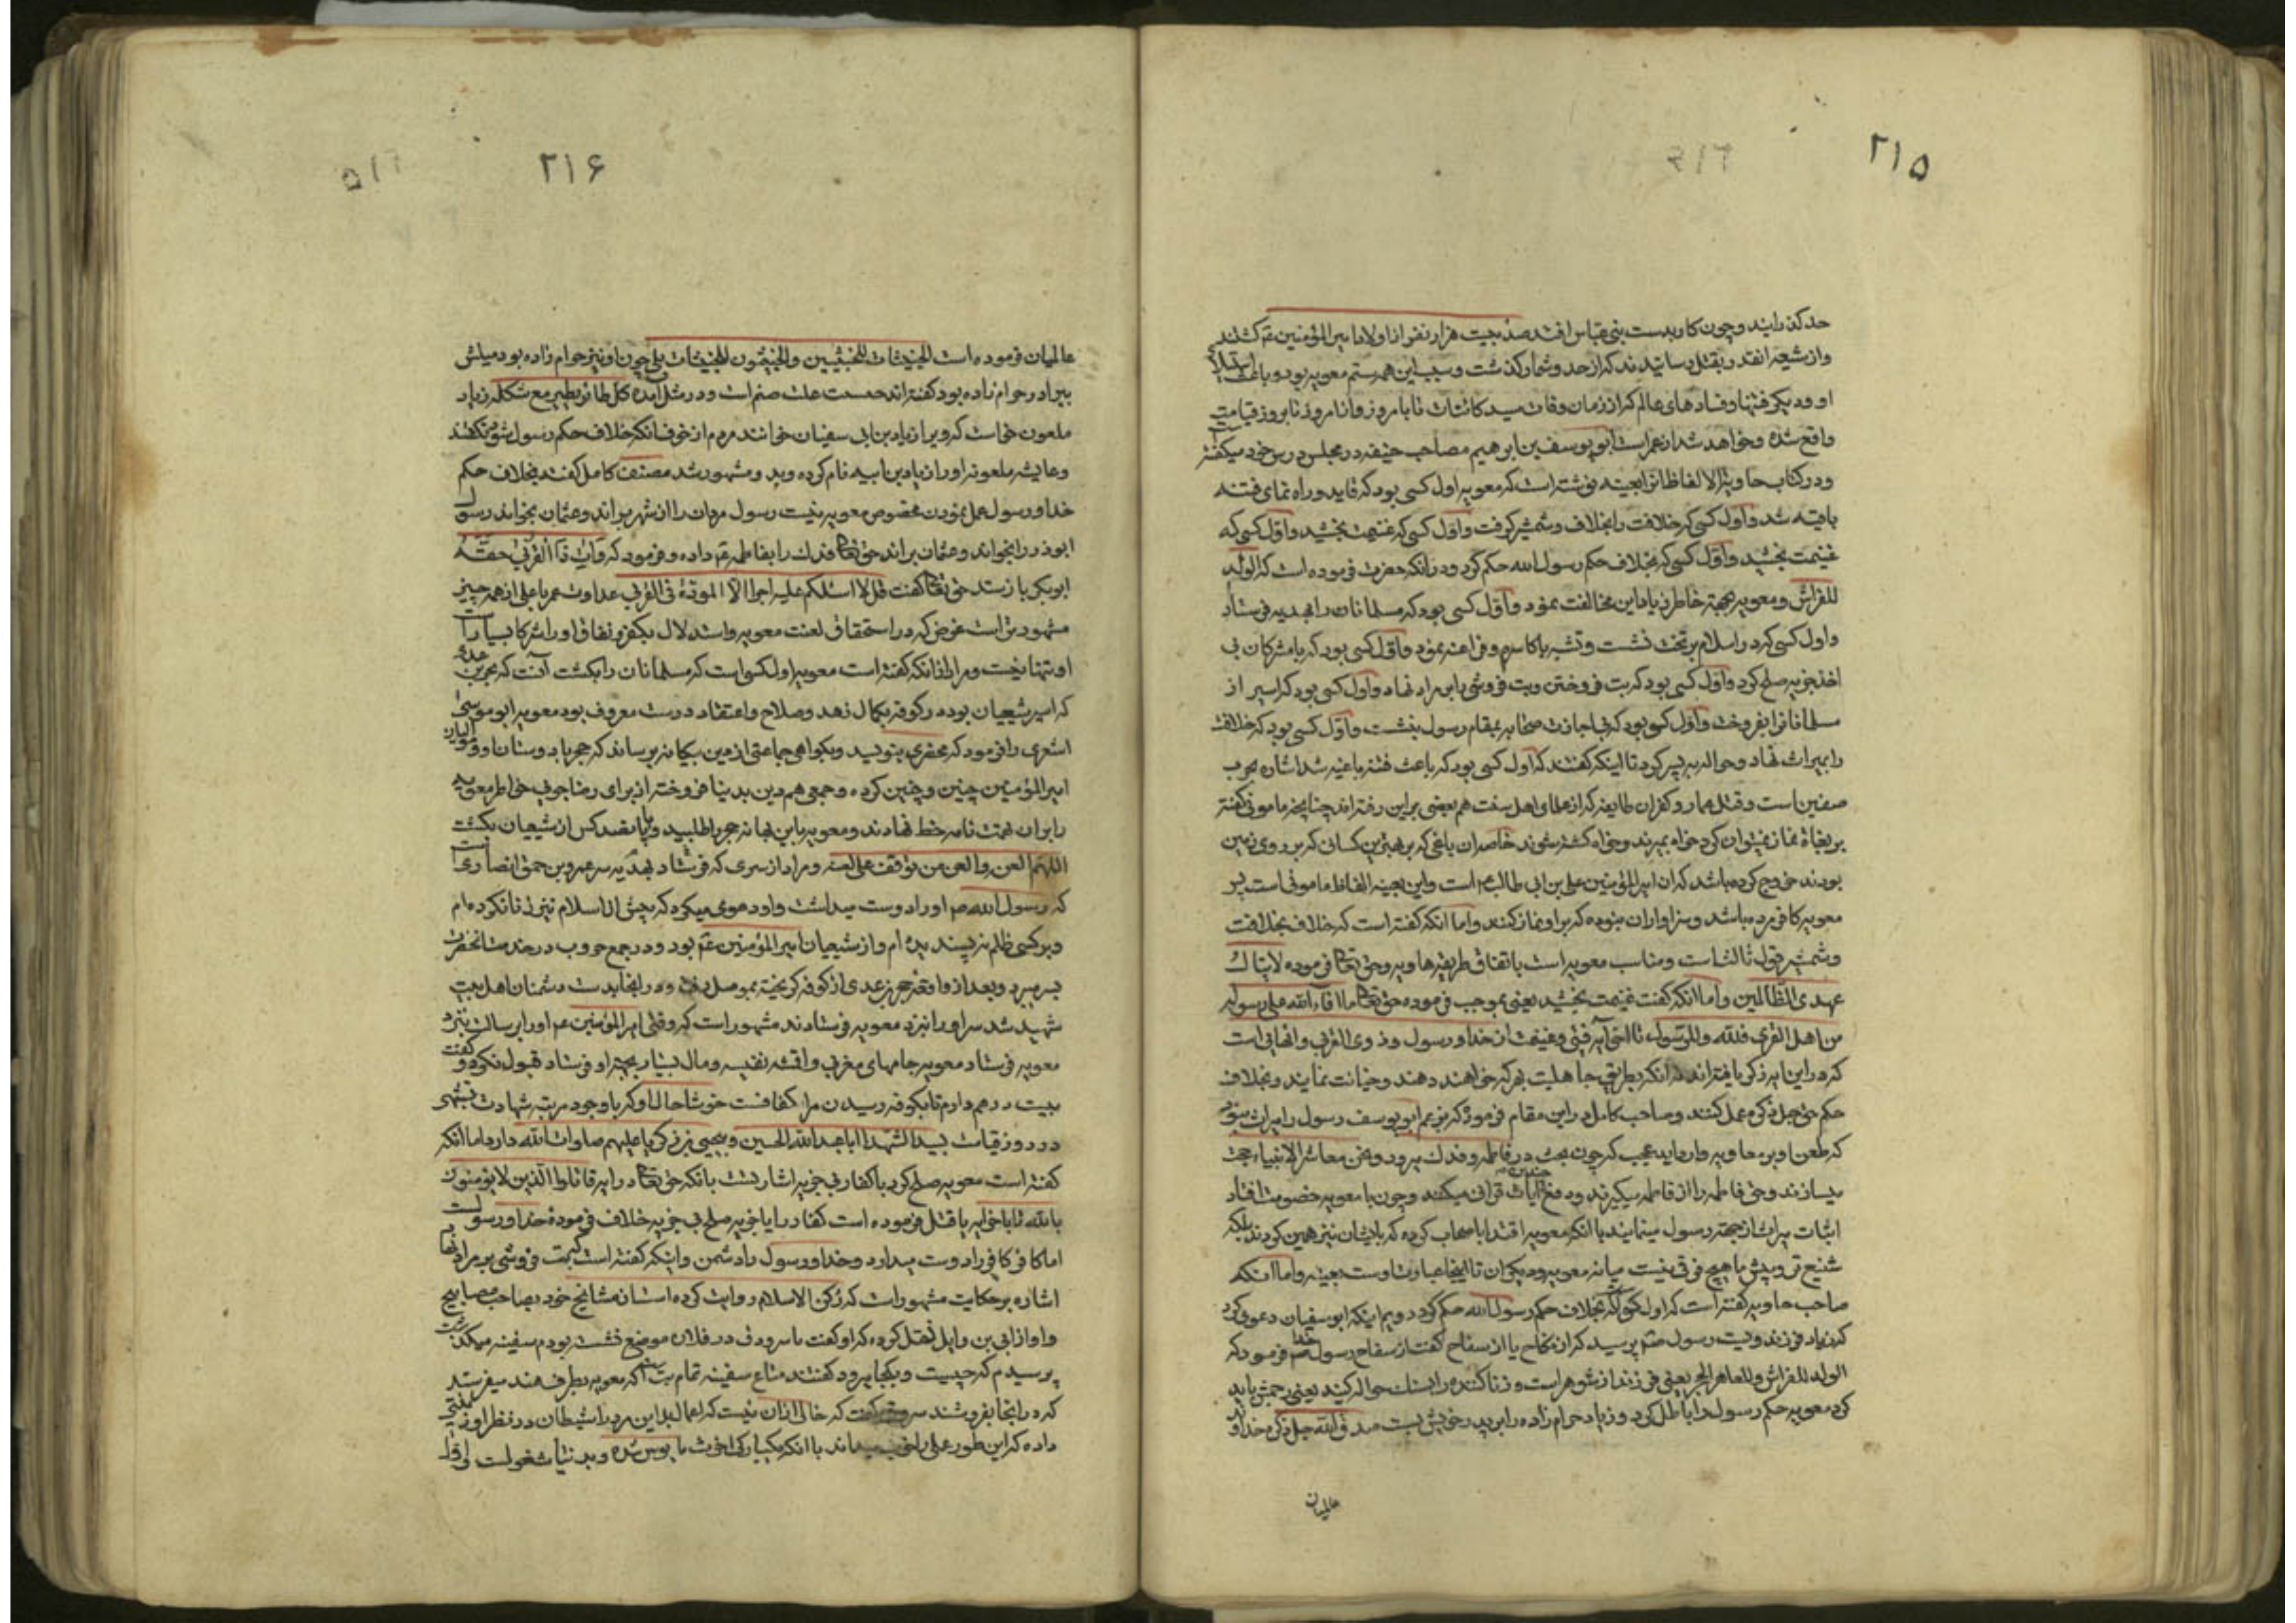 ۲۱۵
حد کذرانیند و چون کار بدست بنی عباس افتد صد بیت هزار نفر از اولاد امیر المؤمنین ع کشتند
و از شیعه انقدر بقتل رسانیدند که از حد و شمار کذشت و سبب این همه ستم معویه بود و باعث استیلای
او و دیکر فتنها و فسادهای عالم که از زمان وفات سید کائنات تا بامروز و از امروز تا بروز قیامت
واقع شده و خواهد شد از عمر است ابو یوسف بن ابرهیم مصاحب حنیفه در مجلس درس خود میکفته
و در کتاب حاویه الالفاظ بعینه نوشته است که معویه اول کسی بود که قاید و راه نمای فتنه
باغیه شد و اول کسی که خلافت را بخلاف و شمشیر کرفت و اول کسی که غنیمت بخشید و اول کسی که
غنیمت بخشید و اول کسی که بخلاف حکم رسول الله حکم کرد و در انکه حضرت فرموده است که الولد
للفراش و معویه بجهة خاطر زیاد این مخالفت نمود و اول کسی بود که مسلمانان را بهدیه فرستاد
و اول کسی که در اسلام بر تخت نشست و تشبه باکاسره و فراعنه نمود و اول کسی بود که با مشرکان بی
اخذ جزیه صلح کرد و اول کسی بود که بت فروختن و بت فروشی بابن مراد نهاد و اول کسی بود که اسیر از
مسلمانانرا بفروخت و اول کسی بود که بی اجازت صحابه بمقام رسول بنشست و اول کسی بود که خلافت
را بمیراث نهاد و حواله به پسر کرد تا اینکه کفتند که اول کسی بود که باعث فتنه باغیه شد اشاره بحرب
صفین است و قتل عمار و کفران طایفه که از علمای اهل سنت هم بعضی براین رفته اند چنانچه مامونی کفته
بر بغاة نماز نمیتوان کرد خواه بمیرند و خواه کشته شوند خاصه ان باغی که بر بهترین کسانی که بر روی زمین
بودند خروج کرده باشد که ان امیر المؤمنین علی بن ابی طالب ع است و این بعینه الفاظ مامونی است پس
معویه کافر مرده باشد و سزاوار ان نبوده که بر او نماز کنند و اما انکه کفته است که خلاف بخلافت
و شمشیر قول ثالث است و مناسب معویه است باتفاق طریقه هاویه و حق تعا فرموده لا ینال
عهدی الظالمین و اما انکه کفت غنیمت بخشید یعنی بموجب فرموده حق تعا ما افاء الله علی رسوله
من اهل القری فلله و للرسول تا اخر آیه فیئ و غنیمت از خدا و رسول و ذوی القربی و انهائی است
که در این ایه ذکر یافته اند نه انکه بطریق جاهلیت بهر که خواهند دهند و خیانت نمایند و بخلاف
حکم حق جل ذکره عمل کنند و صاحب کامل در این مقام فرموده که بزعم ابو یوسف رسول را میراث نبود
که طعن او بر معاویه وارد اید عجب که چون بحث در فاطمه و فدک میرود و نحن معاشر الانبیاء حجت
میسازند و حق فاطمه را از فاطمه میکیرند و دفع چندین آیات قرانی میکنند و چون با معویه خصومت افتاد
اثبات میراث از جهت رسول مینمایند با انکه معویه اقتدا باصحاب کرده که بایشان نیز همین کردند بلکه
شنیع تر و پیش ما هیچ فرقی نیست میانه معویه و دیکران تا اینجا عبارت اوست بعینه و اما انکه
صاحب حاویه کفته است که اول کسی که بخلاف حکم رسول الله حکم کرد دویم اینکه ابو سفیان دعوی کرد
که زیاد فرزند ویست رسول صلم پرسید که از نکاح یا از سفاح کفت از سفاح رسول خدا صم فرمود که
الولد للفراش و للعاهر الحجر یعنی فرزند از شوهر است و زنا کننده را بسنک حواله کنید یعنی رجمش باید
کرد معویه حکم رسول را باطل کرد و زیاد حرام زاده را بر پدر خویش بست صدق الله جل ذکره خداوند
عالمیان
۲۱۶
عالمیان فرموده است الخبیثات للخبیثین و الخبیثون للخبیثات بلی چون او نیز حرام زاده بود میلش
ببرادر حرام زاده بود کفته اند جنسیت علت ضم است و در مثل آمده کل طائر یطیر مع شکله زیاد
ملعون خواست که ویرا زیاد بن ابی سفیان خوانند مردم از خوف انکه خلاف حکم رسول شود نکفتند
و عایشه ملعونه اورا زیاد بن ابیه نام کرده و بد و مشهور شد مصنف کامل کفته بخلاف حکم
خدا و رسول عمل نمودن مخصوص معویه نیست رسول مروان را از شهر براند و عثمان بخواند رسول
ابوذر را بخواند و عثمان براند حق تعا فدک را بفاطمه ع داده و فرمود که و آت ذا القربی حقه
ابوبکر باز ستد حق تعا کفت قل لا اسئلکم علیه اجرا الا المودة فی القربی عداوت عمر با علی از همه چیز
مشهورتر است غرض که در استحقاق لعنت معویه و استدلال بکفر و نفاق او را شرکا بسیار است
او تنها نیست و مراد از انکه کفته است معویه اول کسی است که مسلمانان را بکشت آنست که حجر بن عدی
که اسیر شیعیان بود در کوفه بکمال زهد و صلاح و اعتقاد درست معروف بود معویه ابو موسی
اشعری را فرمود که محضری بنویسد و بکواهی جماعتی از مین بیکانه برساند که حجر با دوستان و موالیان
امیر المؤمنین چنین و چنین کرده و جمعی هم دین بدینا فروخته از برای رضا جوئی خاطر معویه
را بر ان تهمت نامه خط نهادند و معویه باین بهانه حجر را طلبید و با پانصد کس از شیعیان بکشت
اللهم العن و العن من توقف علی لعنه و مراد از سری که فرستاد بهدیه سر عمرو بن حمق انصاری است
که رسول الله صم اورا دوست میداشت و او دعوی میکرد که پیش از اسلام نیز زنا نکرده ام
و بر کسی ظلم نه پسندیده ام و از شیعیان امیر المؤمنین ع بود و در جمیع حروب در خدمت انحضرت
بسر میبرد و بعد از واقعه حجر بن عدی از کوفه کریخته بموصل رفت و در انجا بدست دشمنان اهل بیت
شهید شد سر اورا نزد معویه فرستادند مشهور است که وقتی امیر المؤمنین ع اورا برسالت نزد
معویه فرستاد معویه جامهای مغربی و اقمشه نفیسه و مال بسیار بجهة او فرستاد قبول نکرد و کفت
بیست درهم دارم تا بکوفه رسیدن مرا کفافست خوشا حال او که با وجود مرتبه شهادت تشبهی
در روز قیامت بسید الشهدا ابا عبد الله الحسین و یحیی بن زکریا علیهم صلوات الله دارد اما انکه
کفته است معویه صلح کرد با کفار بی جزیه اشارتست بانکه حق تعا در ایه قاتلوا الذین لا یؤمنون
بالله تا باخر ایه یا قتل فرموده است کفار را یا جزیه صلح بی جزیه خلاف فرموده خدا و رسول است
اما کافر کافر را دوست میدارد و خدا و رسول را دشمن و اینکه کفته است که بت فروشی بر مراد نهاد
اشاره بر حکایت مشهور است که رکن الاسلام روایت کرده است از مشایخ خود بصاحب مصابیح
و او از ابی بن وایل نقل کرده که او کفت با سرودی در فلان موضع نشسته بودم سفینه میکذشت
پرسیدم که چیست و بکجا میرود کفتند متاع سفینه تمام بت است که معویه بطرف هند میفرستد
که در انجا بفروشند سروق کفت که خالی از ان نیست که اعمال بد این مرد را شیطان در نظر او زینتی
داده که این طور عملی را خوب میداند یا انکه یکبارکی از اخرت مایوس شده و بدنیا مشغولست